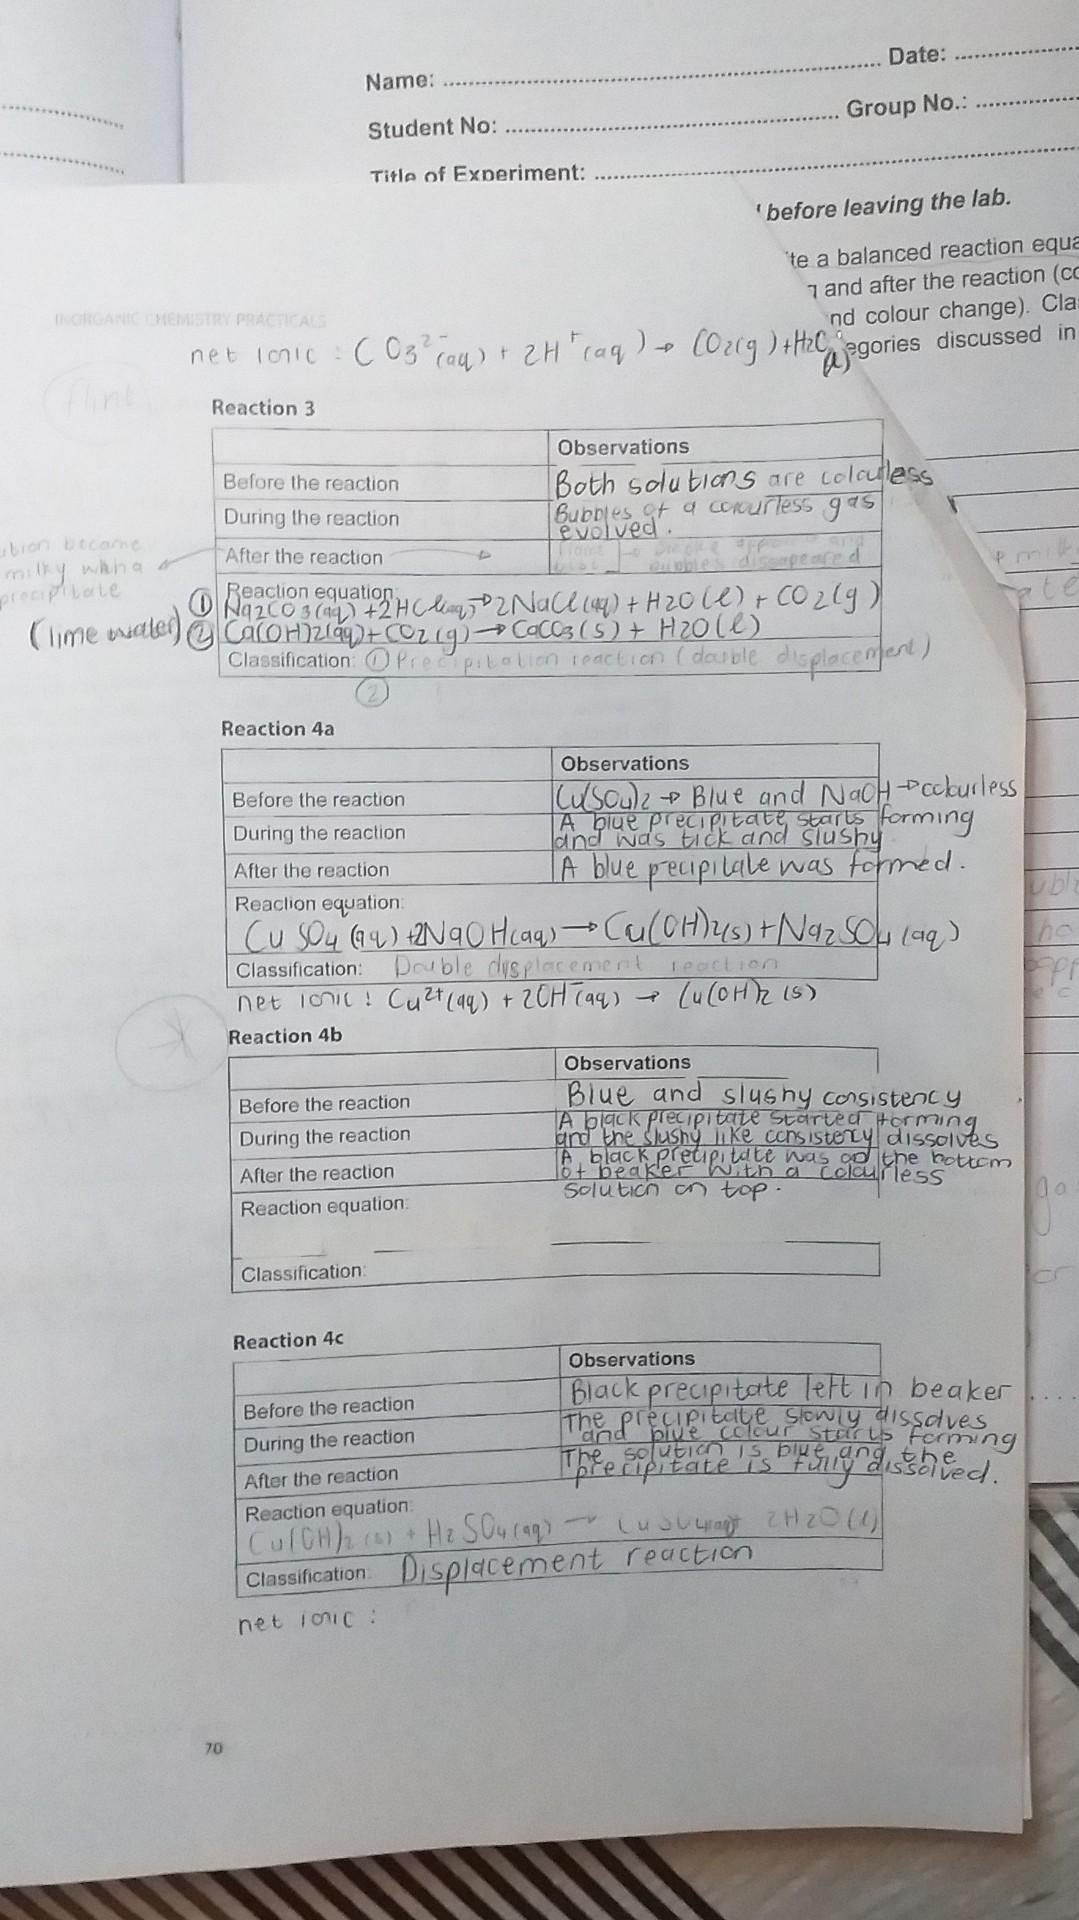 Name: ........ Date: ........
Student No: ........ Group No.: ........
Title of Experiment: ........
before leaving the lab.
te a balanced reaction equa
and after the reaction (co
nd colour change). Cla
egories discussed in
INORGANIC CHEMISTRY PRACTICALS
net ionic : CO3²⁻(aq) + 2H⁺(aq) → CO2(g) + H2O (l)
(flint)
Reaction 3
Observations
Before the reaction Both solutions are colourless
During the reaction Bubbles of a colourless gas
evolved.
After the reaction bubbles dissapeared
ution became
milky with a
precipitate
Reaction equation:
① Na2CO3(aq) + 2HCl(aq) → 2NaCl(aq) + H2O(l) + CO2(g)
(lime water) ② Ca(OH)2(aq) + CO2(g) → CaCO3(s) + H2O(l)
Classification: ① Precipitation reaction (double displacement)
②
Reaction 4a
Observations
Before the reaction Cu(SO4)2 → Blue and NaOH → colourless
During the reaction A blue precipitate starts forming
and was tick and slushy
After the reaction A blue pecipitate was formed.
Reaction equation:
CuSO4(aq) + 2NaOH(aq) → Cu(OH)2(s) + Na2SO4(aq)
Classification: Double dysplacement reaction
net ionic : Cu²⁺(aq) + 2OH⁻(aq) → Cu(OH)2 (s)
Reaction 4b
Observations
Before the reaction Blue and slushy consistency
During the reaction A black precipitate started forming
and the slushy like consistency dissolves
After the reaction A black precipitate was on the bottom
of beaker with a colourless
solution on top.
Reaction equation:
Classification:
Reaction 4c
Observations
Before the reaction Black precipitate left in beaker
During the reaction The precipitate slowly dissolves
and blue colour starts forming
After the reaction The solution is blue and the
precipitate is fully dissolved.
Reaction equation:
Cu(OH)2(s) + H2SO4(aq) → CuSO4(aq) 2H2O(l)
Classification: Displacement reaction
net ionic :
70